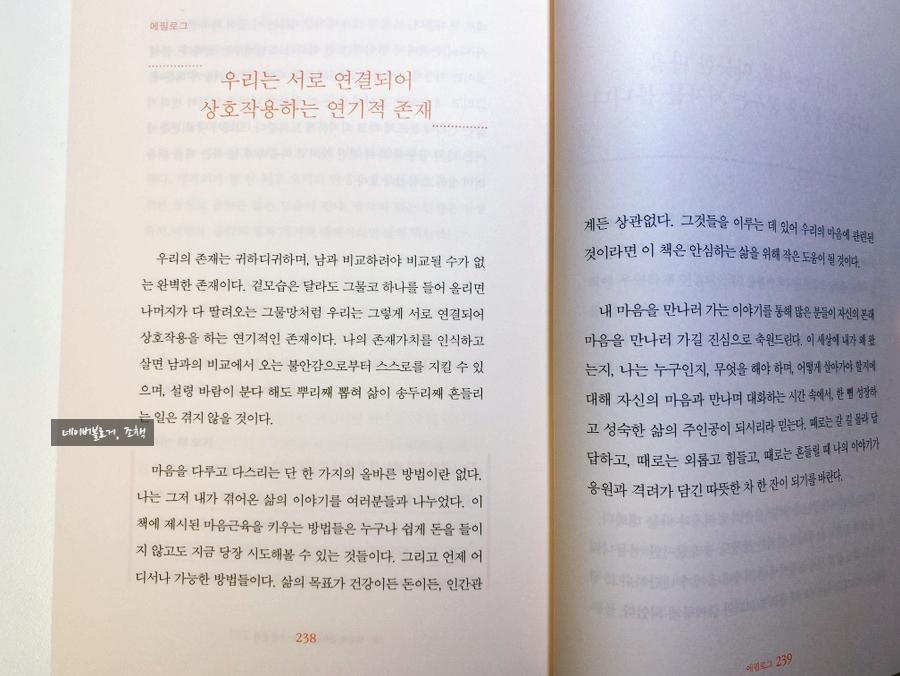 에필로그
우리는 서로 연결되어
상호작용하는 연기적 존재
우리의 존재는 귀하디귀하며, 남과 비교하려야 비교될 수가 없
는 완벽한 존재이다. 겉모습은 달라도 그물코 하나를 들어 올리면
나머지가 다 딸려오는 그물망처럼 우리는 그렇게 서로 연결되어
상호작용을 하는 연기적인 존재이다. 나의 존재가치를 인식하고
살면 남과의 비교에서 오는 불안감으로부터 스스로를 지킬 수 있
으며, 설령 바람이 분다 해도 뿌리째 뽑혀 삶이 송두리째 흔들리
는 일은 겪지 않을 것이다.
네이버블로거, 조책
마음을 다루고 다스리는 단 한 가지의 올바른 방법이란 없다.
나는 그저 내가 겪어온 삶의 이야기를 여러분들과 나누었다. 이
책에 제시된 마음근육을 키우는 방법들은 누구나 쉽게 돈을 들이
지 않고도 지금 당장 시도해볼 수 있는 것들이다. 그리고 언제 어
디서나 가능한 방법들이다. 삶의 목표가 건강이든 돈이든, 인간관
238
계든 상관없다. 그것들을 이루는 데 있어 우리의 마음에 관련된
것이라면 이 책은 안심하는 삶을 위해 작은 도움이 될 것이다.
내 마음을 만나러 가는 이야기를 통해 많은 분들이 자신의 본래
마음을 만나러 가길 진심으로 축원드린다. 이 세상에 내가 왜 왔
는지, 나는 누구인지, 무엇을 해야 하며, 어떻게 살아가야 할지에
대해 자신의 마음과 만나며 대화하는 시간 속에서, 한 뼘 성장하
고 성숙한 삶의 주인공이 되시리라 믿는다. 때로는 갈 길 몰라 답
답하고, 때로는 외롭고 힘들고, 때로는 흔들릴 때 나의 이야기가
응원과 격려가 담긴 따뜻한 차 한 잔이 되기를 바란다.
에필로그 239